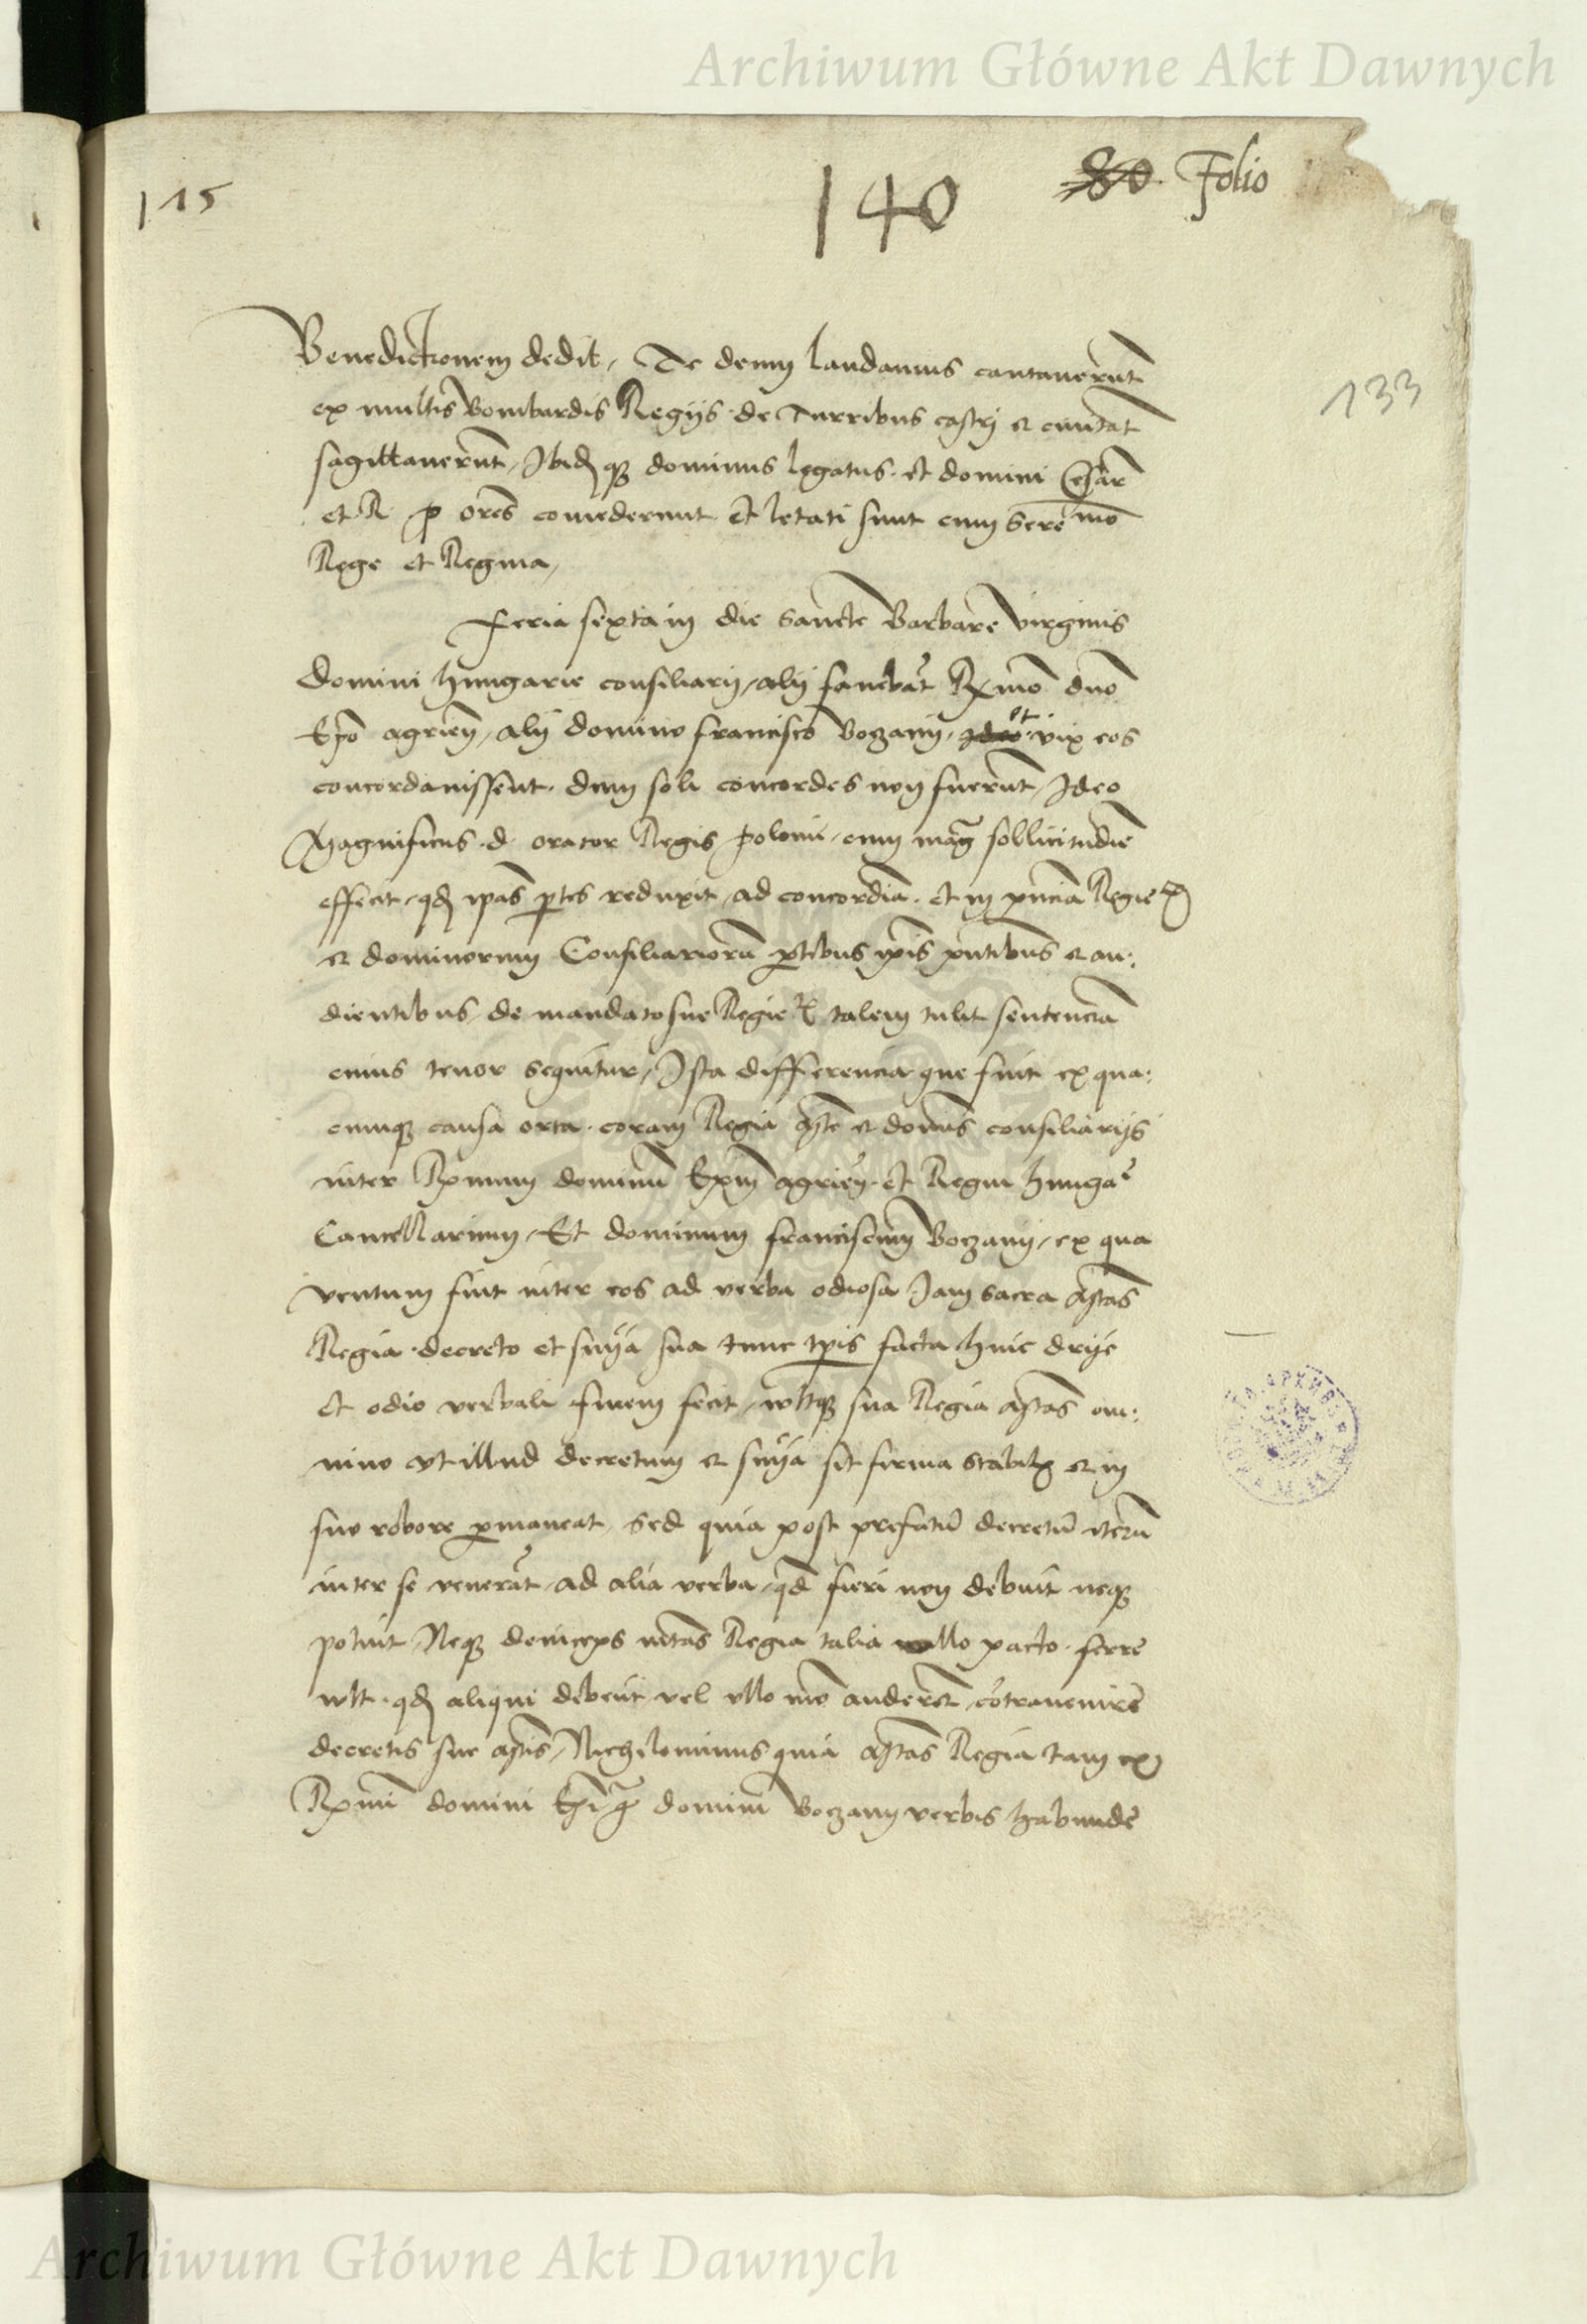 Archiwum Główne Akt Dawnych
115
140
80 Folio
133
Benedictionem dedit, Te deum laudamus cantaverunt
ex multis bombardis Regijs de Turribus castri et civitat
sagittaverunt, Ibidq dominus legatus et domini Cesar
et R p ores comederunt et letati sunt cum Sere mo
Rege et Regina,
Feria sexta in die sancte Barbare virginis
Domini hungarie consiliarij, alij favebat Rxmo dno
Epo agrien, alij domino francisco Boczany, et vix eos
concordavissent, dum soli concordes non fuerunt, Ideo
Magnificus d orator Regis polonie, cum mag sollicitudie
effecit, qd ipas ptes reduxit, ad concordia et in pncia Regie
et dominorum Consiliarioru ptibus ipis pntibus et au:
dientibus, de mandato sue Regie talem tulit sentencia
cuius tenor sequitur, Ista differencia que fuit ex qua:
cunq causa orta, coram Regia Mte et domis consiliarijs
inter Rxmum dominu Epm agrien et Regni hunga
Cancellarium, Et dominum franciscum Boczany, ex qua
ventum fuit inter eos ad verba odiosa Jam sacra Mtas
Regia decreto et snia sua tunc tpis facta huic drie
et odio verbali finem fecit, wltq sua Regia Mtas om:
nino vt illud decretum et snia sit firma stabilis et in
suo robore pmaneat, Sed quia post prefatu decretu iteru
inter se venerat ad alia verba, qd fieri non debuit neq
potuit, Neq deinceps mtas Regia talia ullo pacto ferre
wlt, qd aliqui debent vel vllo mo auderet cotravenire
decretis sue Mtis, Nichilominus quia Mtas Regia tam ex
Rxmi domini Epi q domini Boczany verbis habunde
Archiwum Główne Akt Dawnych